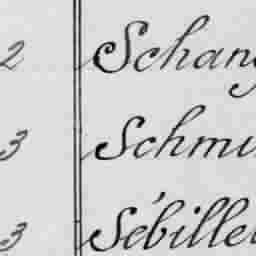 2 Schang
3 Schmu
3 Sébille